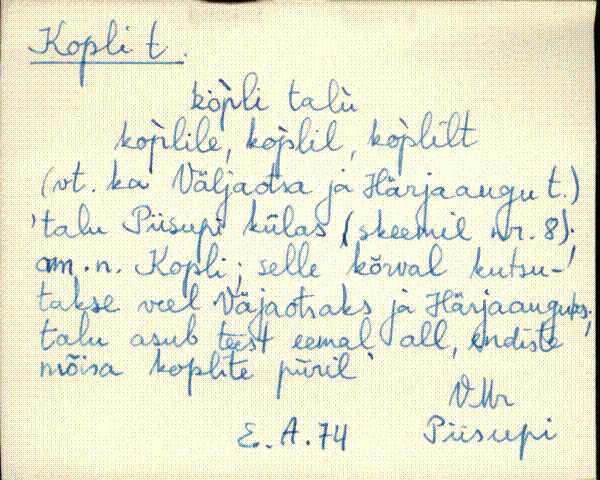 Kopli t.
kop̀li talu
kop̀lile, kop̀lil, kop̀lilt
(vt. ka Väljaotsa ja Härjaaugu t.)
'talu Piisupi külas (skeemil nr. 8);
am. n. Kopli; selle kõrval kutsu-
takse veel Väjaotsaks ja Härjaauguks;
talu asub teest eemal all, endiste
mõisa koplite piiril'
VMr
E. A. 74 Piisupi